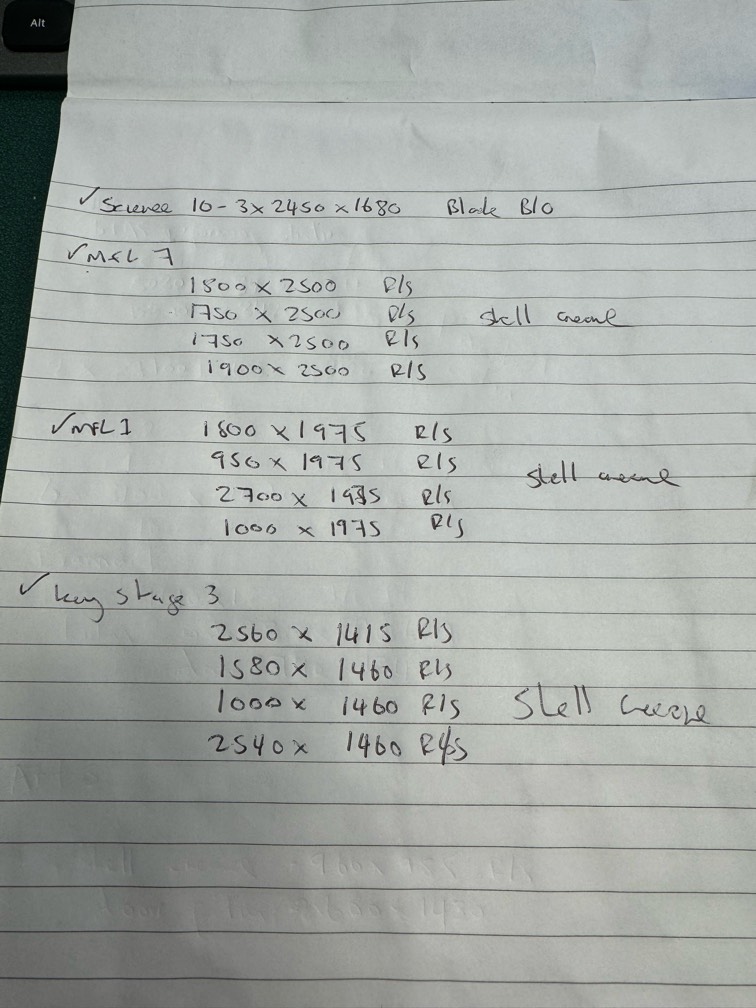 Alt
✓ Science 10 - 3 x 2450 x 1680 Black B/O
✓ MFL 7
1800 x 2500 R/S
1750 x 2500 R/S Stell creone
1750 x 2500 R/S
1900 x 2500 R/S
✓ MFL 1 1800 x 1975 R/S
950 x 1975 R/S Stell creone
2700 x 1975 R/S
1000 x 1975 R/S
✓ key stage 3
2560 x 1415 R/S
1580 x 1460 R/S
1000 x 1460 R/S Stell
2540 x 1460 R/S